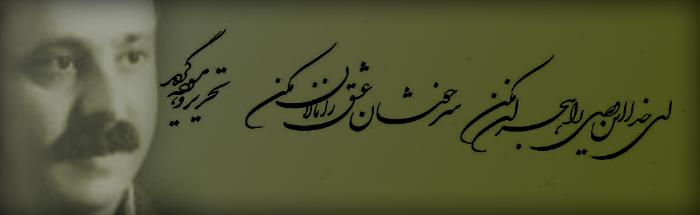 ای خدا این وصل را هجران مکن سرخوشان عشق را نالان مکن
تحریر